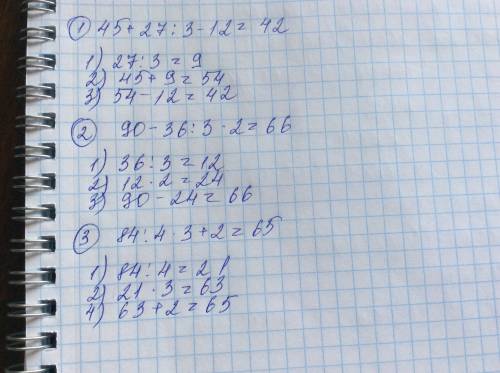 ① 45+27:3-12=42
1) 27:3=9
2) 45+9=54
3) 54-12=42
② 90-36:3·2=66
1) 36:3=12
2) 12·2=24
3) 90-24=66
③ 84:4·3+2=65
1) 84:4=21
2) 21·3=63
4) 63+2=65